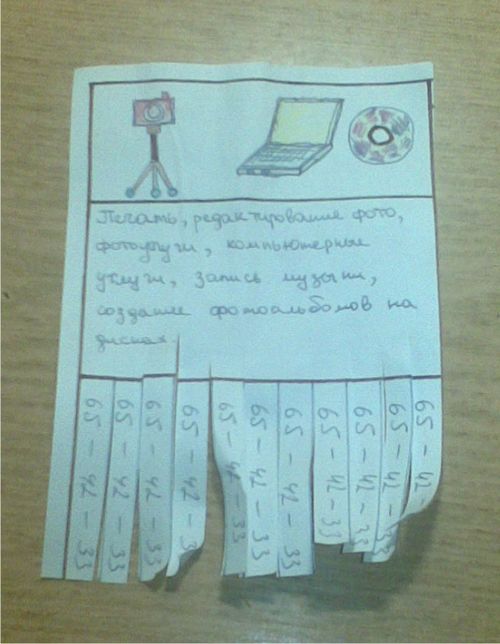 Печать, редактирование фото,
фотоуслуги, компьютерные
услуги, запись музыки,
создание фотоальбомов на
дисках
65 - 42 - 33
65 - 42 - 33
65 - 42 - 33
65 - 42 - 3
65 - 42 - 33
65 - 42 - 33
65 - 42 - 33
65 - 42 - 33
65 - 42 - 33
65 - 42 - 33
65 - 42 -